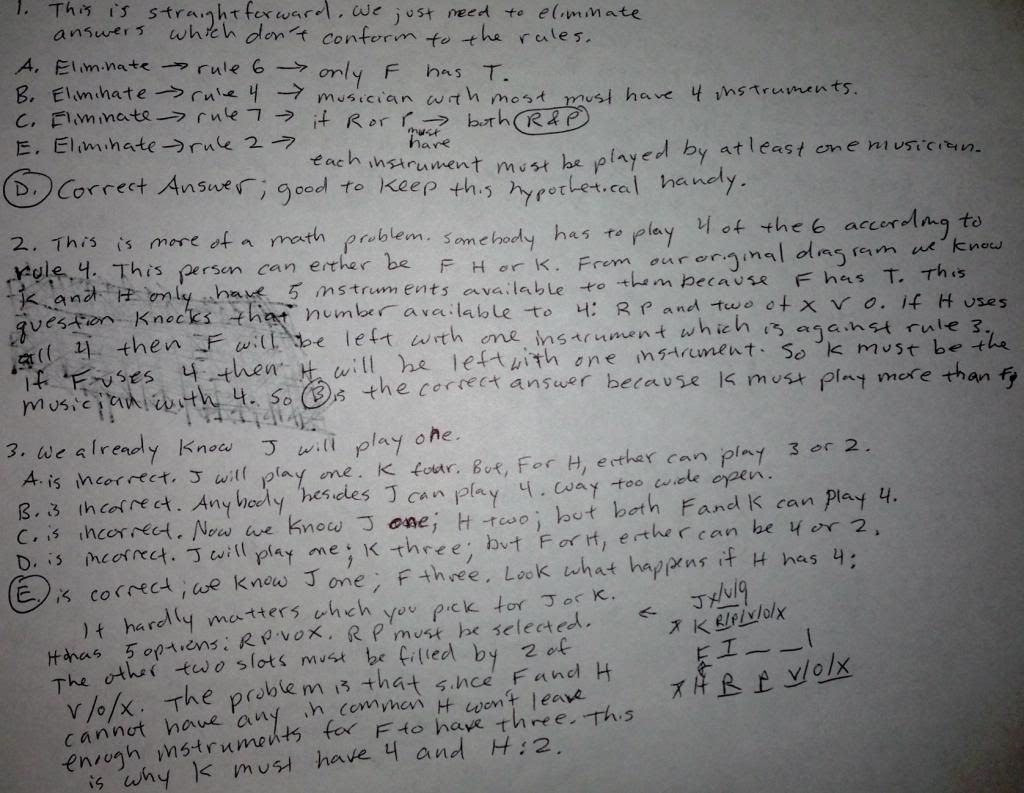 1. This is straightforward. We just need to eliminate
answers which don't conform to the rules.
A. Eliminate → rule 6 → only F has T.
B. Eliminate → rule 4 → musician with most must have 4 instruments.
C. Eliminate → rule 7 → if R or P → must have both R & P
E. Eliminate → rule 2 → each instrument must be played by at least one musician.
D. Correct Answer; good to keep this hypothetical handy.
2. This is more of a math problem. Somebody has to play 4 of the 6 according to
rule 4. This person can either be F H or K. From our original diagram we know
K and H only have 5 instruments available to them because F has T. This
question knocks that number available to 4: R P and two of X V O. If H uses
all 4 then F will be left with one instrument which is against rule 3.
If F uses 4 then H will be left with one instrument. So K must be the
musician with 4. So B is the correct answer because K must play more than F
3. We already know J will play one.
A. is incorrect. J will play one. K four. But, F or H, either can play 3 or 2.
B. is incorrect. Anybody besides J can play 4. Way too wide open.
C. is incorrect. Now we know J one; H two; but both F and K can play 4.
D. is incorrect. J will play one; K three; but F or H, either can be 4 or 2.
E. is correct; we know J one; F three. Look what happens if H has 4:
It hardly matters which you pick for J or K. ←
H has 5 options: R P V O X. R P must be selected.
The other two slots must be filled by 2 of
V/O/X. The problem is that since F and H
cannot have any in common H won't leave
enough instruments for F to have three. This
is why K must have 4 and H: 2.
K R/P/V/O/X
H R P V/O/X